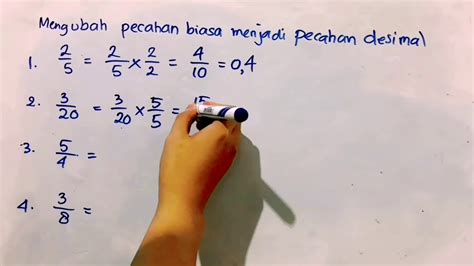 Mengubah pecahan biasa menjadi pecahan desimal
1. 2/5 = 2/5 × 2/2 = 4/10 = 0,4
2. 3/20 = 3/20 × 5/5 = 15
3. 5/4 =
4. 3/8 =